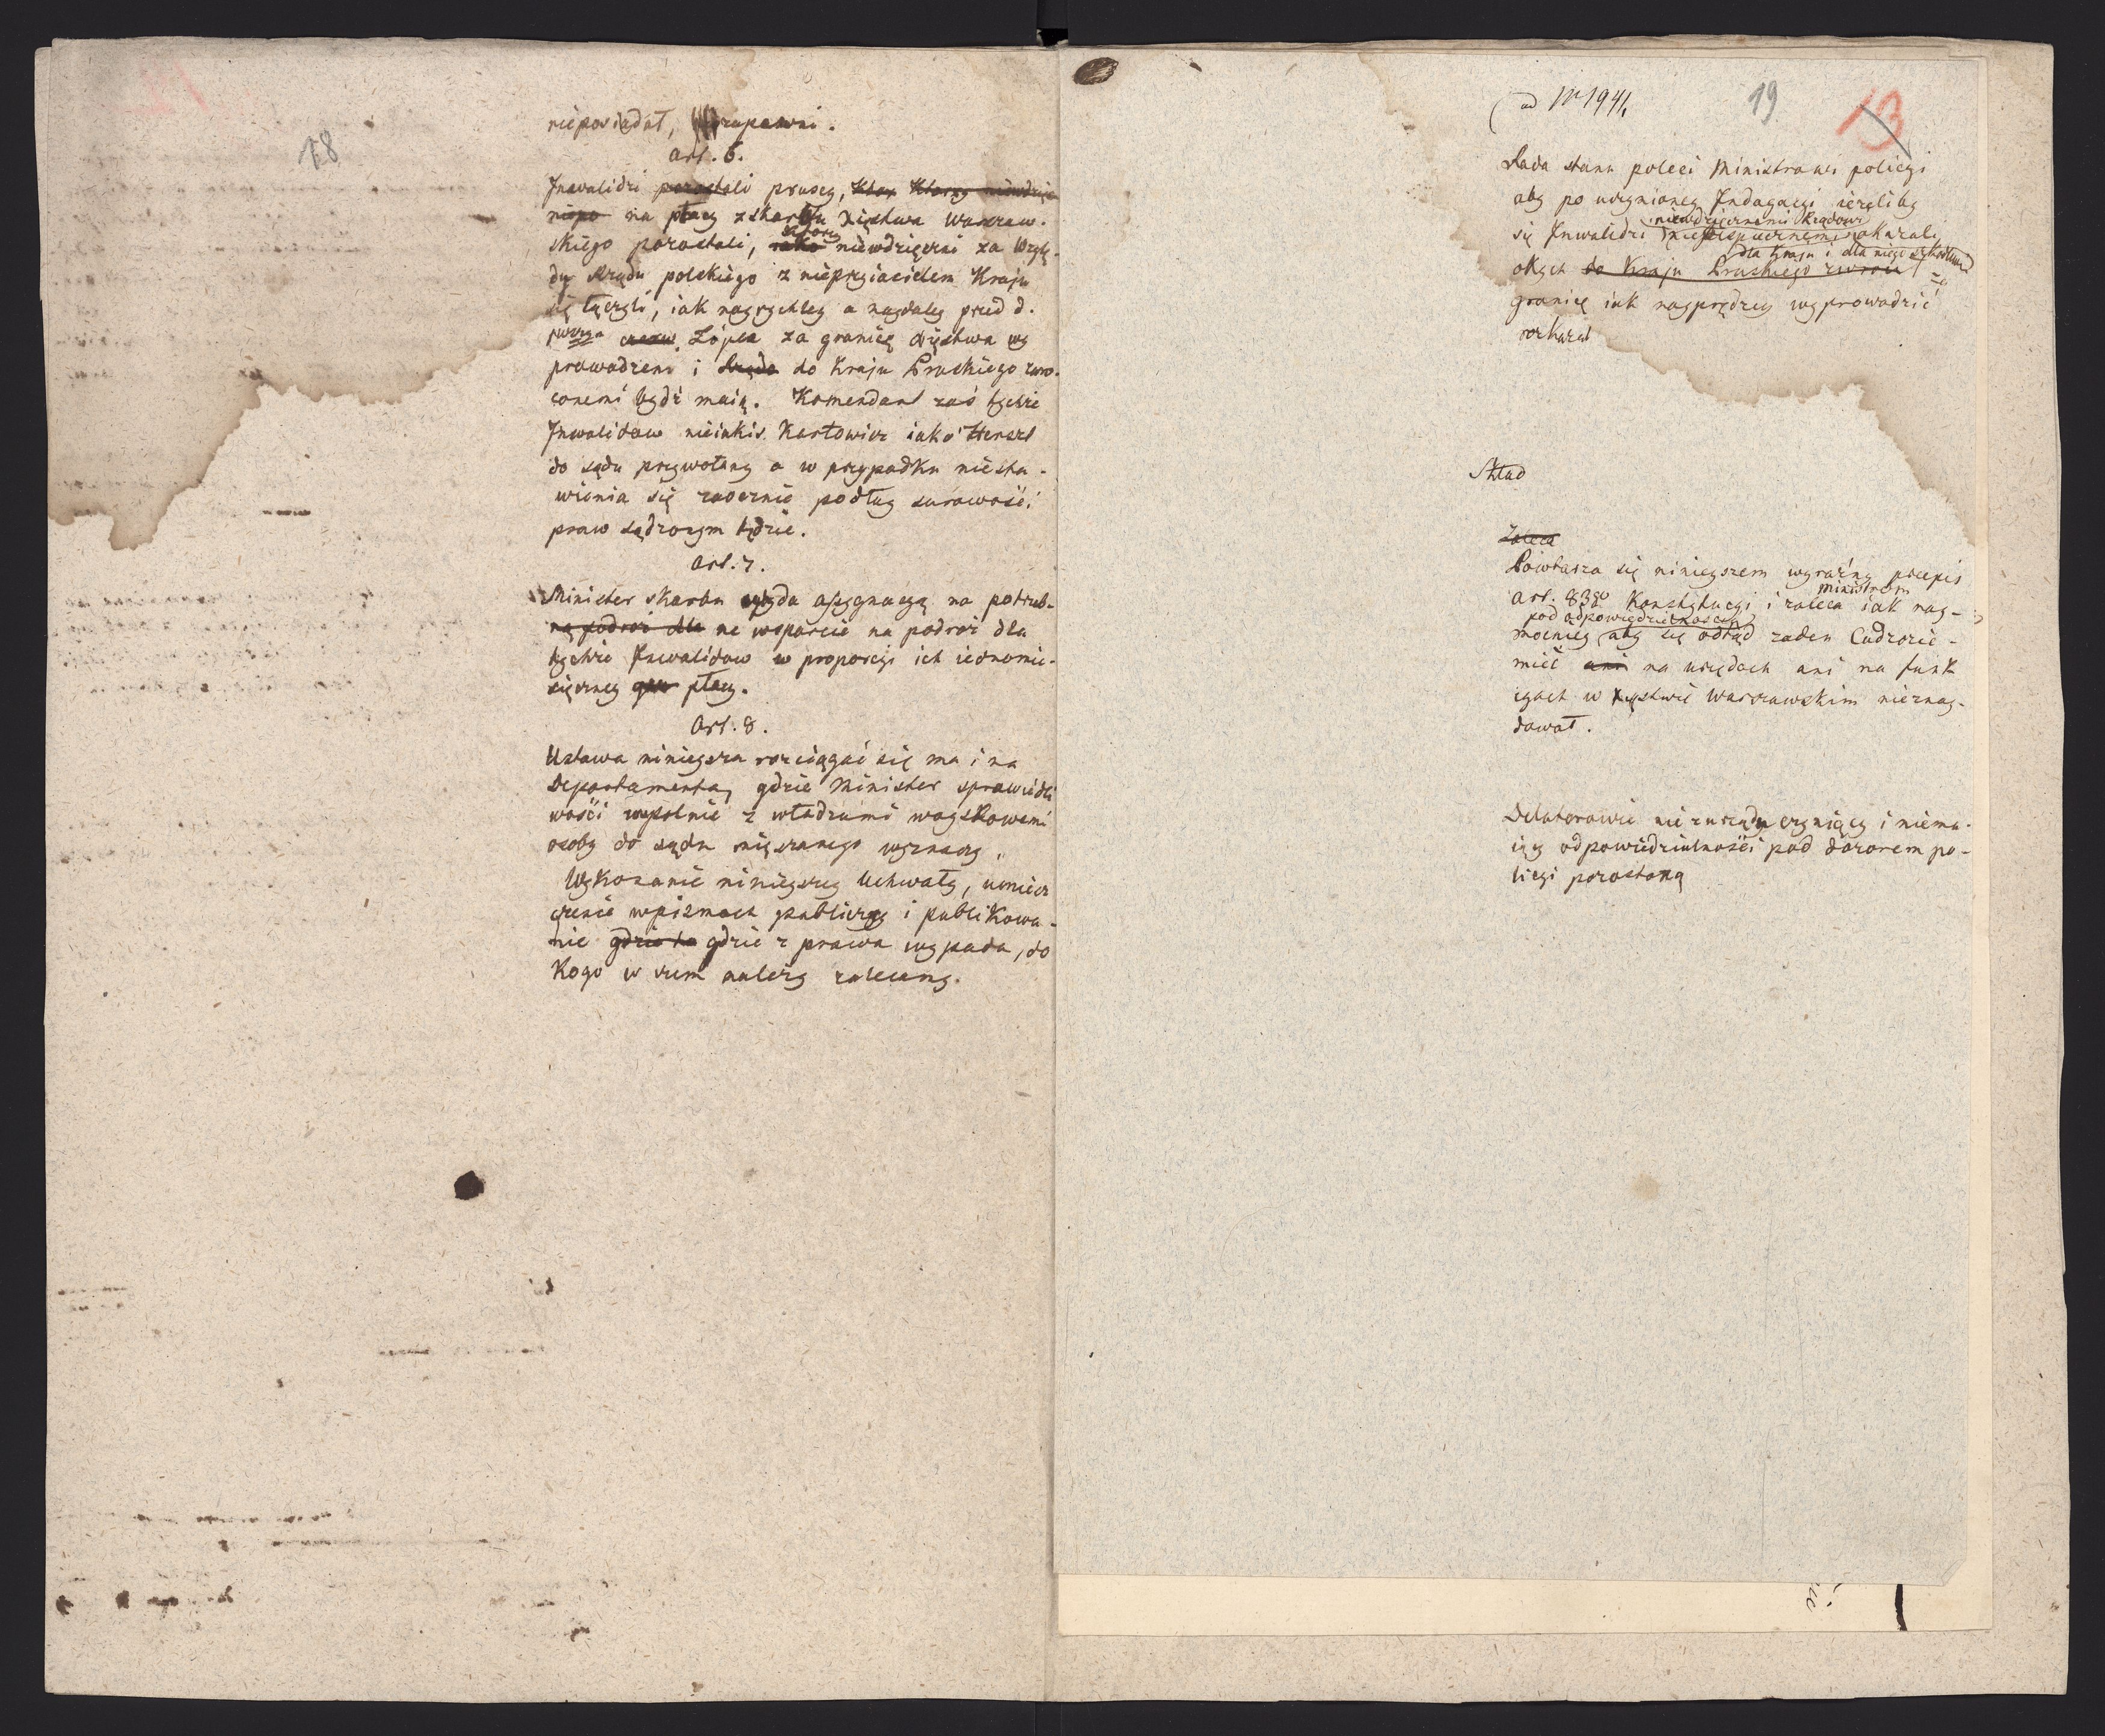 18
nieposiadał, zrupowni.
Art. 6.
Inwalidzi pozostali pruscy, Ktorzy niewdzię
na płacy z skarbu Xięstwa Warszaw-
skiego pozostali, iako którzy niewdzięczni za wzglę-
dy Rządu polskiego z nieprzyiacielem Kraju
się łączyli, iak nayrychley a naydaley przed d.
Lipca za granicę Xięstwa wy
prowadzeni i do Kraju Pruskiego zwro-
conemi bydź maią. Komendant zaś tychże
Inwalidow nieiakiś Karłowicz iako Herszt
do sądu przywołany a w przypadku niesta-
wienia się zaocznie podług surowości
praw sądzonym będzie.
Art. 7.
Minister skarbu wyda assygnacyą na potrzeb-
ną podroż dla na wsparcie na podroż dla
tychże Inwalidow w proporcyi ich iednomie-
sięczney płacy.
Art. 8.
Ustawa ninieysza rozciągać się ma i na
Departamenta, gdzie Minister sprawiedli
wości wspolnie z władzami woyskowemi
osoby do sądu mięszanego wyznaczy.
Wykonanie ninieyszey Uchwały, umiesz
czenie w pismach publiczny i publikowa-
nie gdzie to gdzie z prawa wypada, do
Kogo w czem należy zalecamy.
ad Nr 1941,
19
13
Rada stanu poleci Ministrowi policyi
aby po uczynioney Indagacyi ieżeliby
niewdzięcznemi Krajowi
się Inwalidzi niebespiecznemi okazali
dla Kraju i dla niego szkodliwi
onych do Kraju Pruskiego zwroci za
granicę iak nayprędzey wyprowadzić
rozkazał
Skład
Zaleca
Powtarza się ninieyszem wyraźny przepis
Ministrom
Art. 83go Konstytucyi i zaleca iak nay-
pod odpowiedzialnością
mocniey aby się odtąd żaden Cudzozie-
miec ani na urzędach ani na funk
cyach w Xięstwie Warszawskim nieznay-
dował.
Delatorowie nie z urzędu czyniący i niema-
iący odpowiedzialności pod dozorem po-
licyi pozostaną